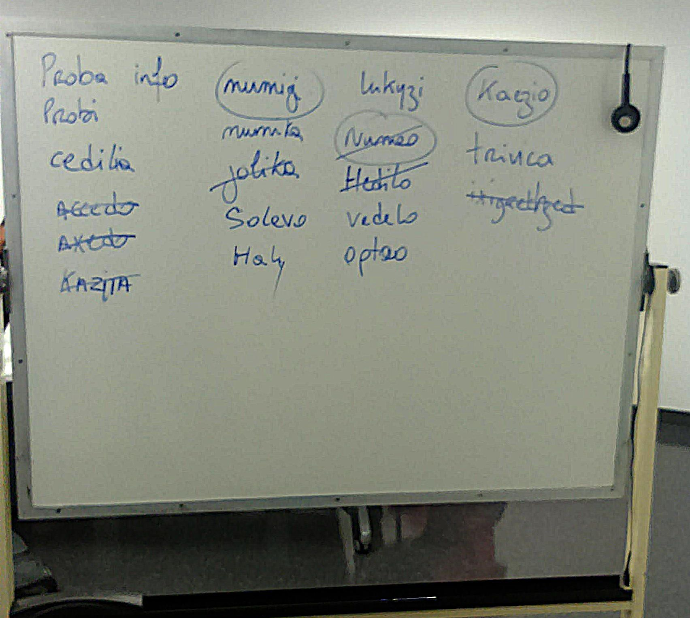 Proba info
Probi
cedilia
Accedo
Axedo
KAZITA
numigi
numita
jolika
Solevo
Haly
lukyzi
Numeo
Hedilo
vedelo
optao
Kaezio
trinca